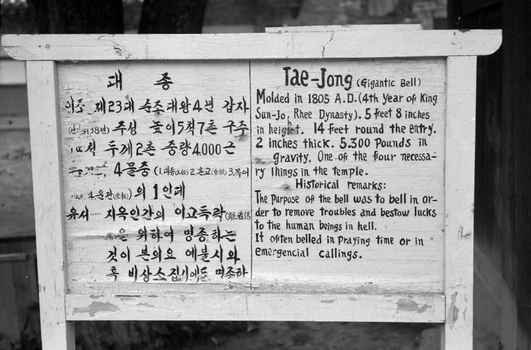 대 종
이조 제23대 순조대왕4년 갑자
주성 높이5척7촌 구주
척 두께2촌 중량4.000근
4물중
의 1인데
유서 지옥인간의 이고득락
을 위하여 명종하는
것이 본의요 예불시와
혹 비상소집시에도 명종하
Tae-Jong (Gigantic Bell)
Molded in 1805 A.D. (4th Year of King
Sun-Jo, Rhee Dynasty). 5 feet 8 inches
in height. 14 feet round the entry.
2 inches thick. 5.300 Pounds in
gravity. One of the four necessa-
ry things in the temple.
Historical remarks:
The Purpose of the bell was to bell in or-
der to remove troubles and bestow lucks
to the human beings in hell.
It often belled in Praying time or in
emergencial callings.